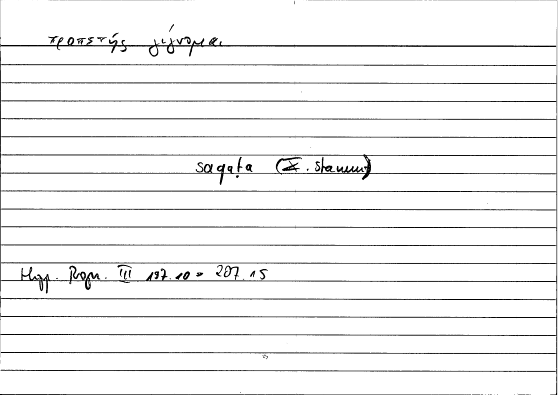 προπετής γίγνομαι
saqaṭa (I. Stamm)
Hipp. Progn. III 197.10 = 207.15